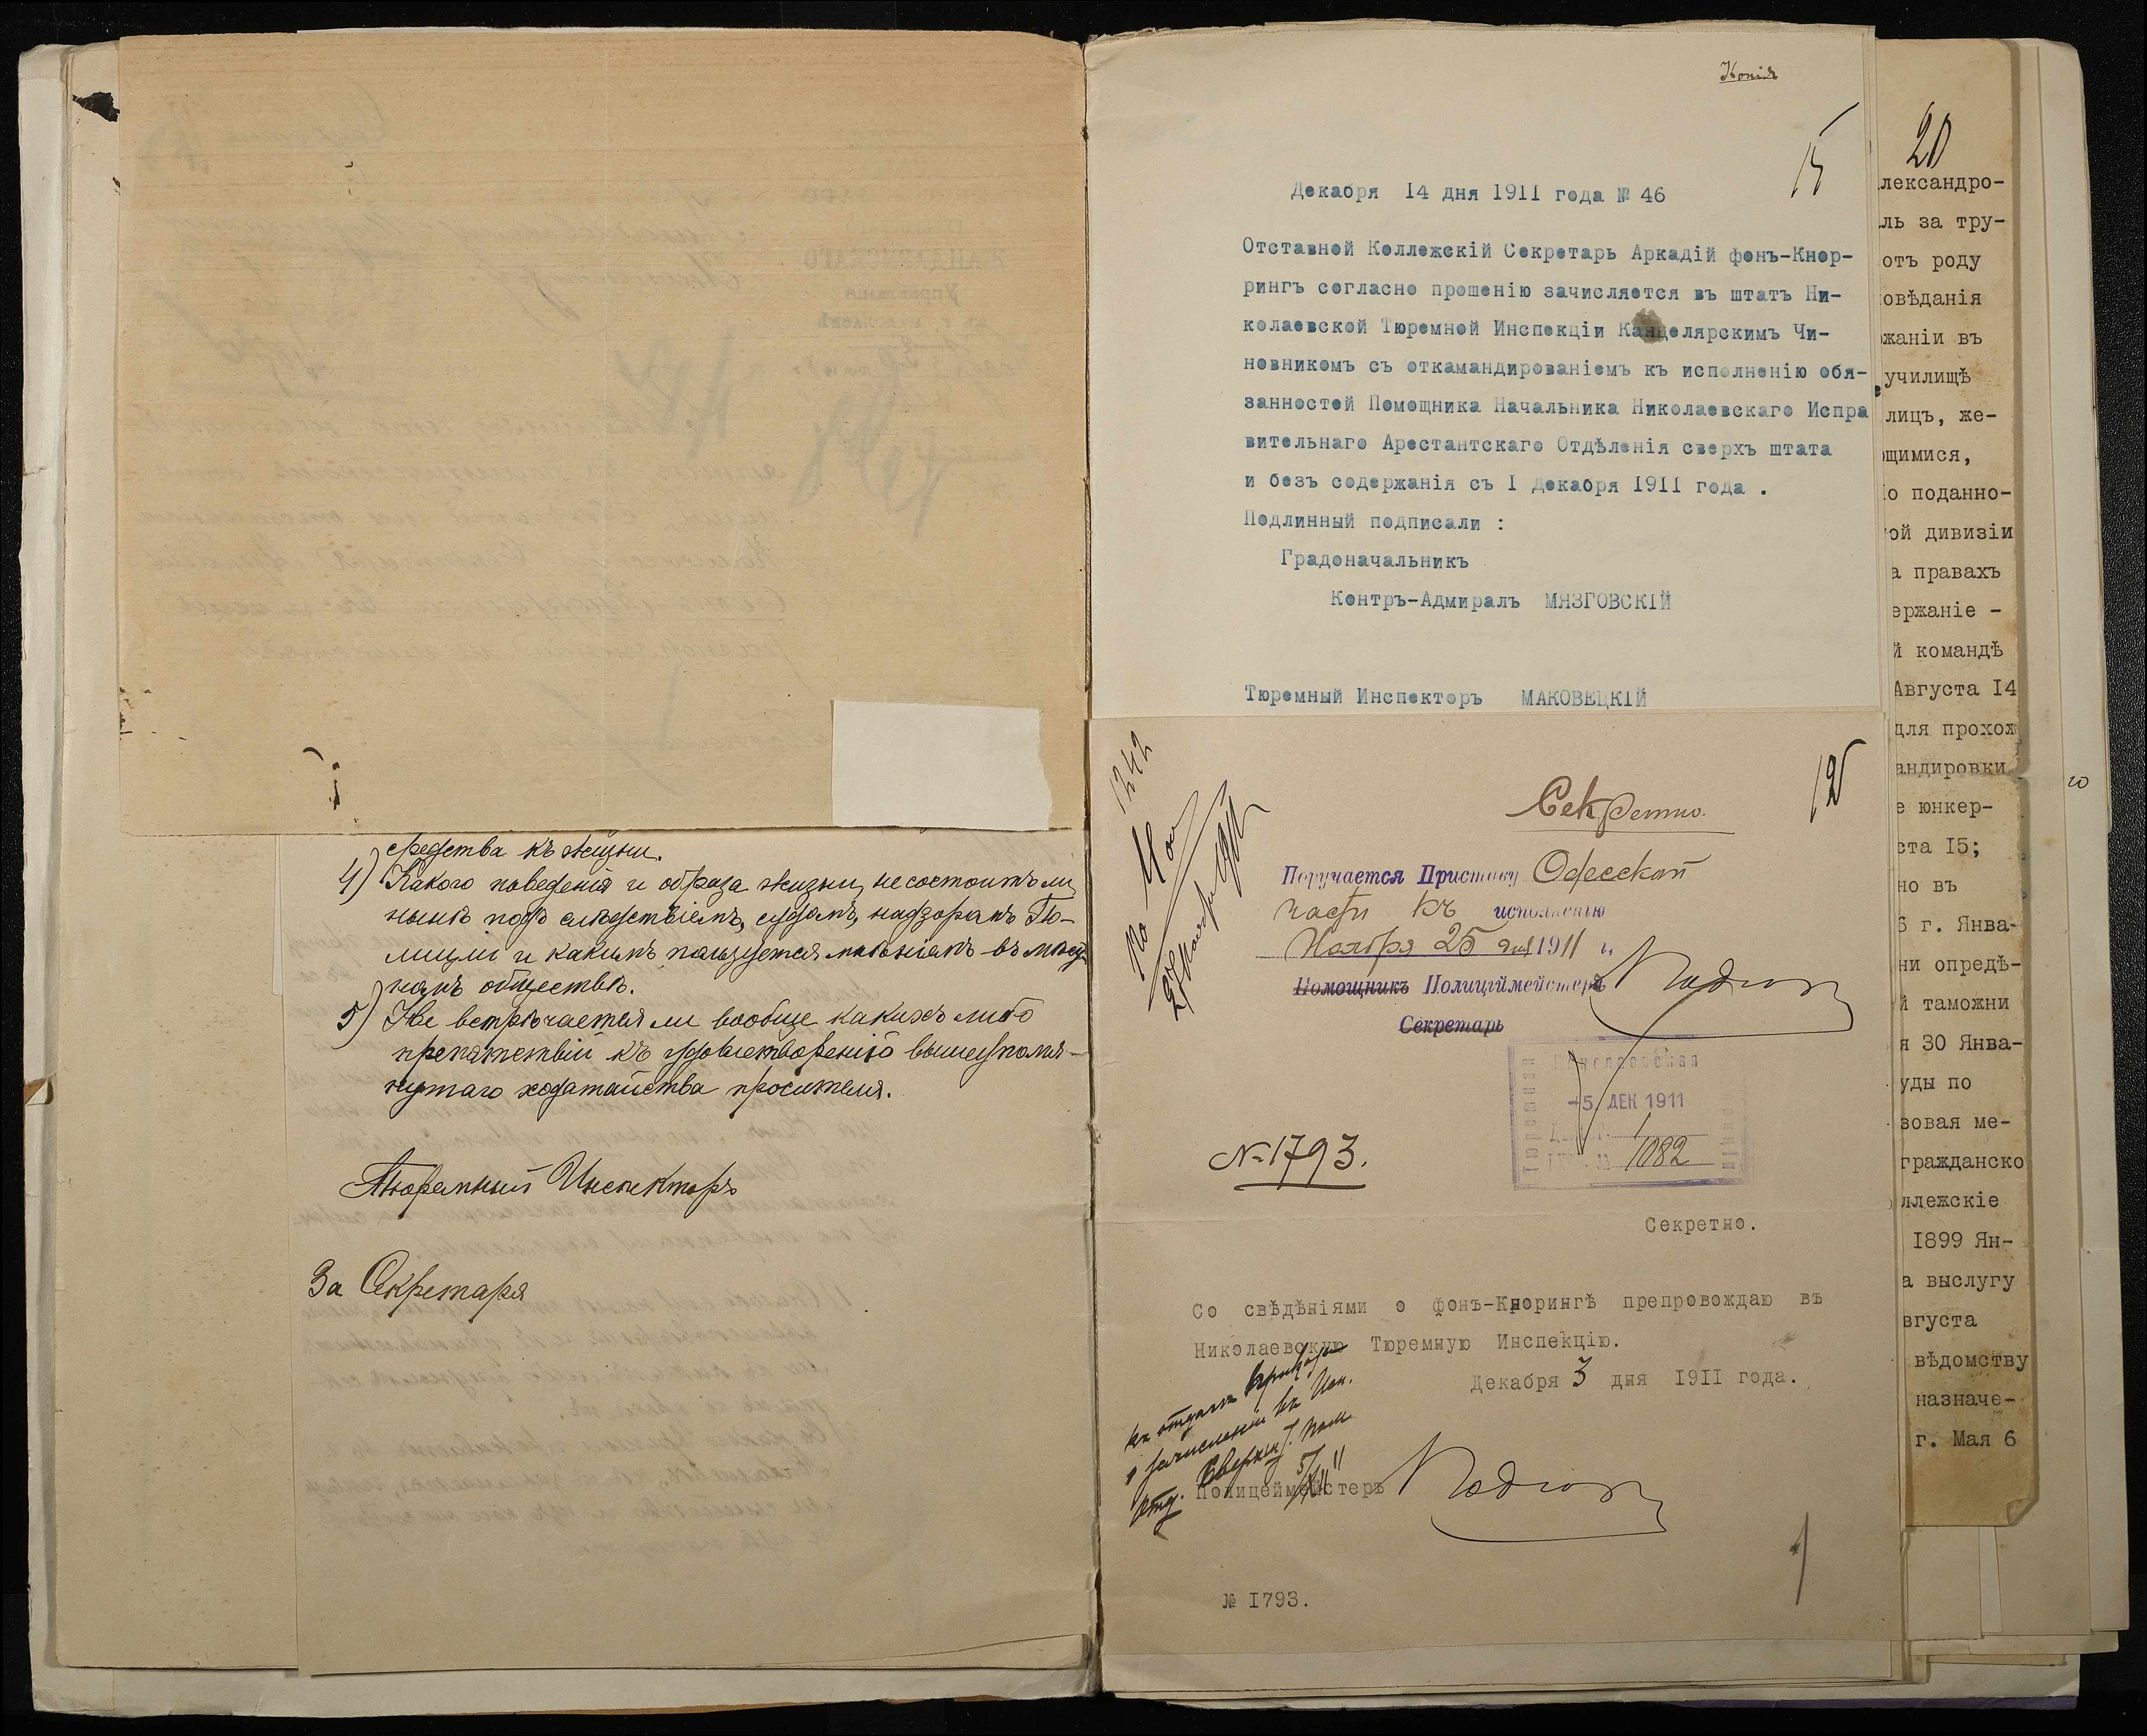 средства къ жизни.
4) Какого поведенія и образа жизни, не состоитъ ли
нынѣ подъ слѣдствіемъ, судомъ, надзоромъ По-
лиціи и какимъ пользуется мнѣніемъ въ мѣст-
номъ обществѣ.
5) Не встрѣчается ли вообще какихъ либо
препятствій къ удовлетворенію вышеупомя-
нутаго ходатайства просителя.
Тюремный Инспекторъ
За Секретаря
Копія
15
Декабря 14 дня 1911 года № 46
Отставной Коллежскій Секретарь Аркадій фонъ-Кнор-
рингъ согласно прошенію зачисляется въ штатъ Ни-
колаевской Тюремной Инспекціи Канцелярскимъ Чи-
новникомъ съ откамандированіемъ къ исполненію обя-
занностей Помощника Начальника Николаевскаго Испра
вительнаго Арестантскаго Отдѣленія сверхъ штата
и безъ содержанія съ I Декабря 1911 года .
Подлинный подписали :
Градоначальникъ
Контръ-Адмиралъ МЯЗГОВСКІЙ
Тюремный Инспекторъ МАКОВЕЦКІЙ
1242
12
Секретно.
Поручается Приставу Одесской
части къ исполненію
Ноября 25 дня 1911 г.
Помощникъ Полиціймейстера
Секретарь
Николаевская
Тюремная
-5 ДЕК 1911
1082
№ 1793.
Секретно.
Со свѣдѣніями о фонъ-Кнорингѣ препровождаю въ
Николаевскую Тюремную Инспекцію.
Декабря 3 дня 1911 года.
Полицеймейстеръ
№ 1793.
20
лександро-
ль за тру-
отъ роду
овѣданія
жаніи въ
училищѣ
лицъ, же-
щимися,
о поданно-
ой дивизіи
а правахъ
ержаніе -
й командѣ
Августа 14
для прохож
андировки
е юнкер-
ста 15;
но въ
6 г. Янва-
ни опредѣ-
й таможни
я 30 Янва-
уды по
зовая ме-
гражданско
ллежскіе
1899 Ян-
а выслугу
вгуста
вѣдомству
назначе-
г. Мая 6
20